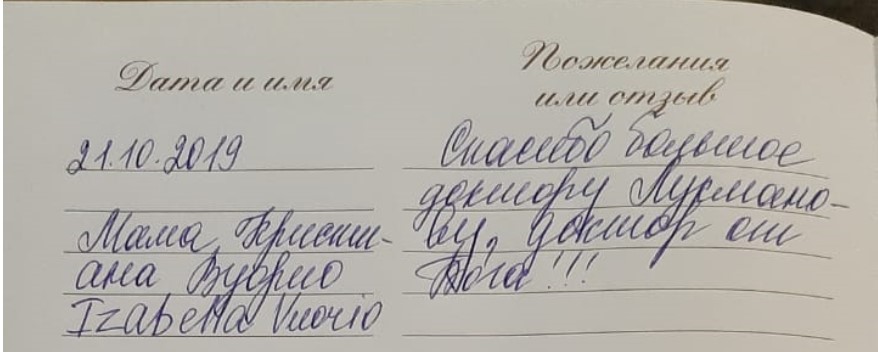 Дата и имя
Пожелания
или отзыв
21.10.2019
Мама Кристи-
ана Вуорио
Izabella Vuorio
Спасибо большое
доктору Лукмано-
ву, доктор от
Бога!!!